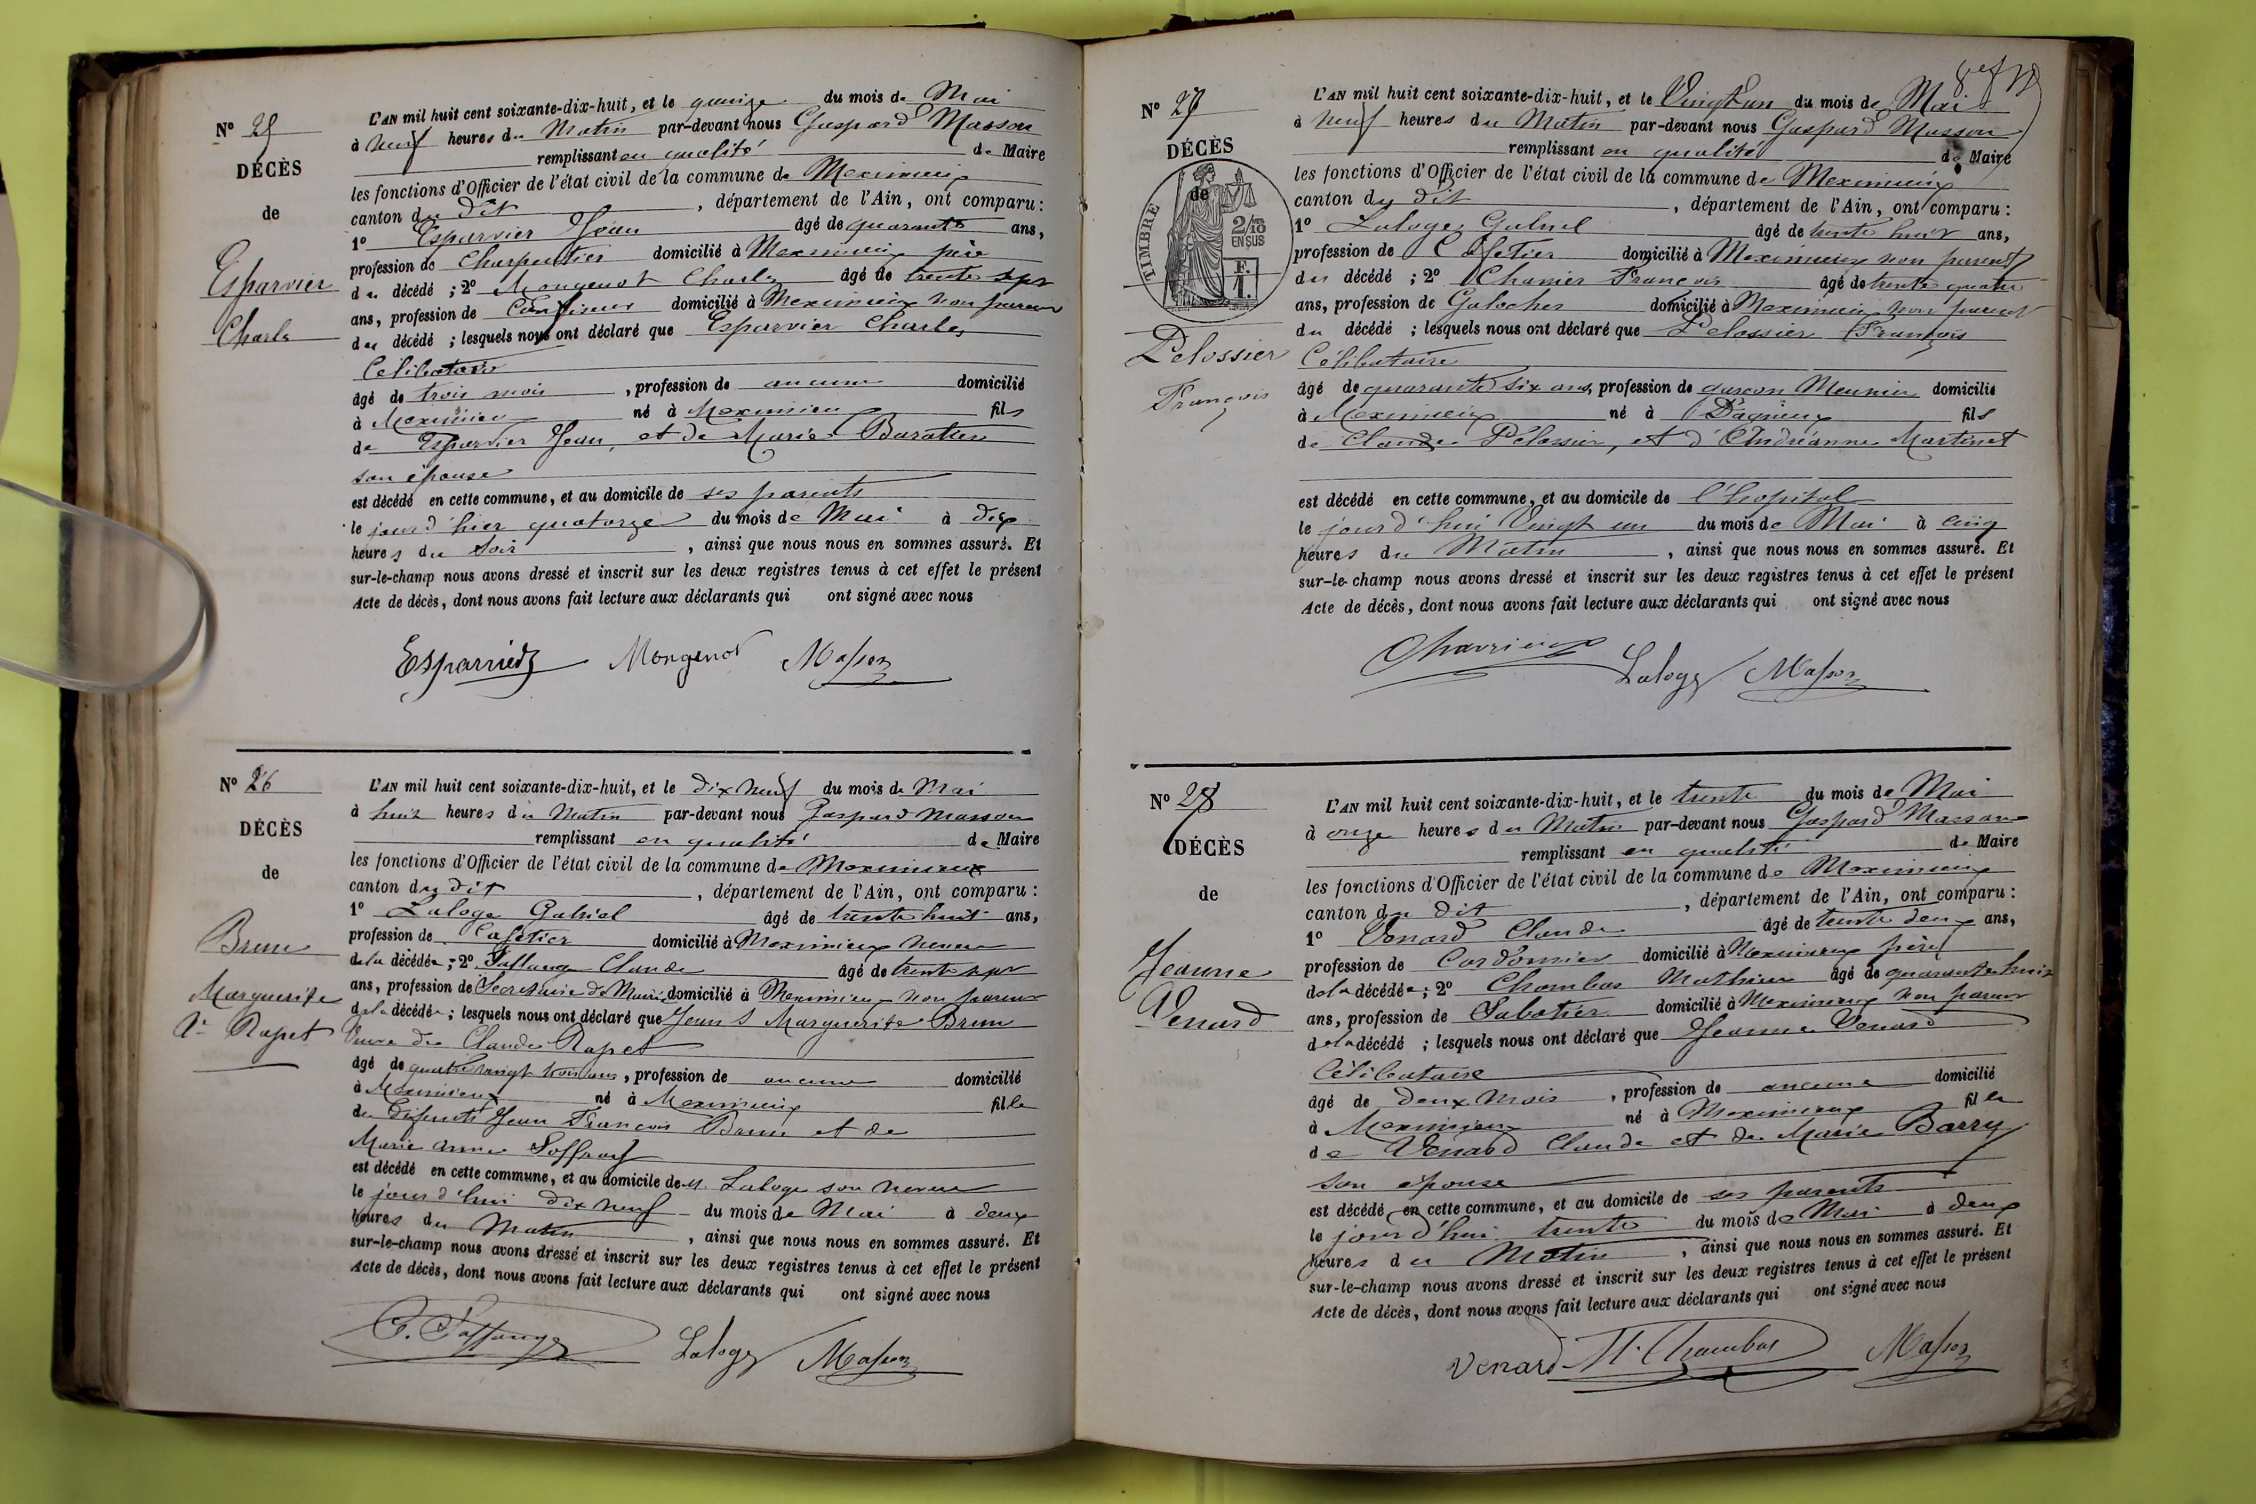 N° 25
DÉCÈS
de
Esparvier
Charles
L'AN mil huit cent soixante-dix-huit, et le quinze du mois de Mai
à neuf heures du Matin par-devant nous Gaspard Masson
remplissant en qualité de Maire
les fonctions d'Officier de l'état civil de la commune de Meximieux
canton du dit , département de l'Ain, ont comparu :
1° Esparvier Jean âgé de quarante ans,
profession de Charpentier domicilié à Meximieux père
du décédé ; 2° Mongenot Charles âgé de trente sept
ans, profession de Confiseur domicilié à Meximieux non parent
du décédé ; lesquels nous ont déclaré que Esparvier Charles
Célibataire
âgé de trois mois , profession de aucune domicilié
à Meximieu né à Meximieu fils
de Esparvier Jean, et de Marie Baratin
son épouse
est décédé en cette commune, et au domicile de ses parents
le jourd'hier quatorze du mois de Mai à dix
heures du Soir , ainsi que nous nous en sommes assuré. Et
sur-le-champ nous avons dressé et inscrit sur les deux registres tenus à cet effet le présent
Acte de décès, dont nous avons fait lecture aux déclarants qui ont signé avec nous
Mongenot Masson
N° 26
DÉCÈS
de
Brun
Marguerite
Ve Rapet
L'AN mil huit cent soixante-dix-huit, et le dix neuf du mois de Mai
à huit heures du Matin par-devant nous Gaspard Masson
remplissant en qualité de Maire
les fonctions d'Officier de l'état civil de la commune de Meximieux
canton du dit , département de l'Ain, ont comparu :
1° Laloge Gabriel âgé de trente huit ans,
profession de Cafetier domicilié à Meximieux neveu
de la décédée ; 2° Claude âgé de trente sept
ans, profession de Secretaire de Mairie domicilié à Meximieux non parent
de la décédée ; lesquels nous ont déclaré que Jeanne Marguerite Brun
Veuve de Claude Rapet
âgé de quatre vingt trois ans , profession de aucune domicilié
à Meximieux né à Meximieux fille
de défunts Jean François Brun et de
Marie anne
est décédé en cette commune, et au domicile de M. Laloge son neveu
le jourd'hui dix neuf du mois de Mai à deux
heures du Matin , ainsi que nous nous en sommes assuré. Et
sur-le-champ nous avons dressé et inscrit sur les deux registres tenus à cet effet le présent
Acte de décès, dont nous avons fait lecture aux déclarants qui ont signé avec nous
Laloge Masson
N° 27
DÉCÈS
de
TIMBRE
2/10
EN SUS
Pelossier
François
L'AN mil huit cent soixante-dix-huit, et le Vingt un du mois de Mai
à neuf heures du Matin par-devant nous Gaspard Masson
remplissant en qualité de Maire
les fonctions d'Officier de l'état civil de la commune de Meximieux
canton du dit , département de l'Ain, ont comparu :
1° Laloge Gabriel âgé de trente huit ans,
profession de Cafetier domicilié à Meximieux non parent
du décédé ; 2° François âgé de trente quatre
ans, profession de Galocher domicilié à Meximieux non parent
du décédé ; lesquels nous ont déclaré que Pelossier François
Célibataire
âgé de quarante six ans, profession de garçon Meunier domicilié
à Meximieux né à Dagnieux fils
de Claude Pelossier, et d'Andréanne Martinet
est décédé en cette commune, et au domicile de l'hopital
le jourd'hui Vingt un du mois de Mai à cinq
heures du Matin , ainsi que nous nous en sommes assuré. Et
sur-le-champ nous avons dressé et inscrit sur les deux registres tenus à cet effet le présent
Acte de décès, dont nous avons fait lecture aux déclarants qui ont signé avec nous
Laloge Masson
N° 28
DÉCÈS
de
Jeanne
Venard
L'AN mil huit cent soixante-dix-huit, et le trente du mois de Mai
à onze heures du Matin par-devant nous Gaspard Masson
remplissant en qualité de Maire
les fonctions d'Officier de l'état civil de la commune de Meximieux
canton du dit , département de l'Ain, ont comparu :
1° Venard Claude âgé de trente deux ans,
profession de Cordonnier domicilié à Meximieux père
de la décédée ; 2° Chambas Mathieu âgé de quarante huit
ans, profession de Sabotier domicilié à Meximieux non parent
de la décédé ; lesquels nous ont déclaré que Jeanne Venard
Célibataire
âgé de deux mois , profession de aucune domicilié
à Meximieux né à Meximieux fille
de Venard Claude et de Marie Barry
son épouse
est décédé en cette commune, et au domicile de ses parents
le jourd'hui trente du mois de Mai à deux
heures du Matin , ainsi que nous nous en sommes assuré. Et
sur-le-champ nous avons dressé et inscrit sur les deux registres tenus à cet effet le présent
Acte de décès, dont nous avons fait lecture aux déclarants qui ont signé avec nous
Venard M. Chambas Masson